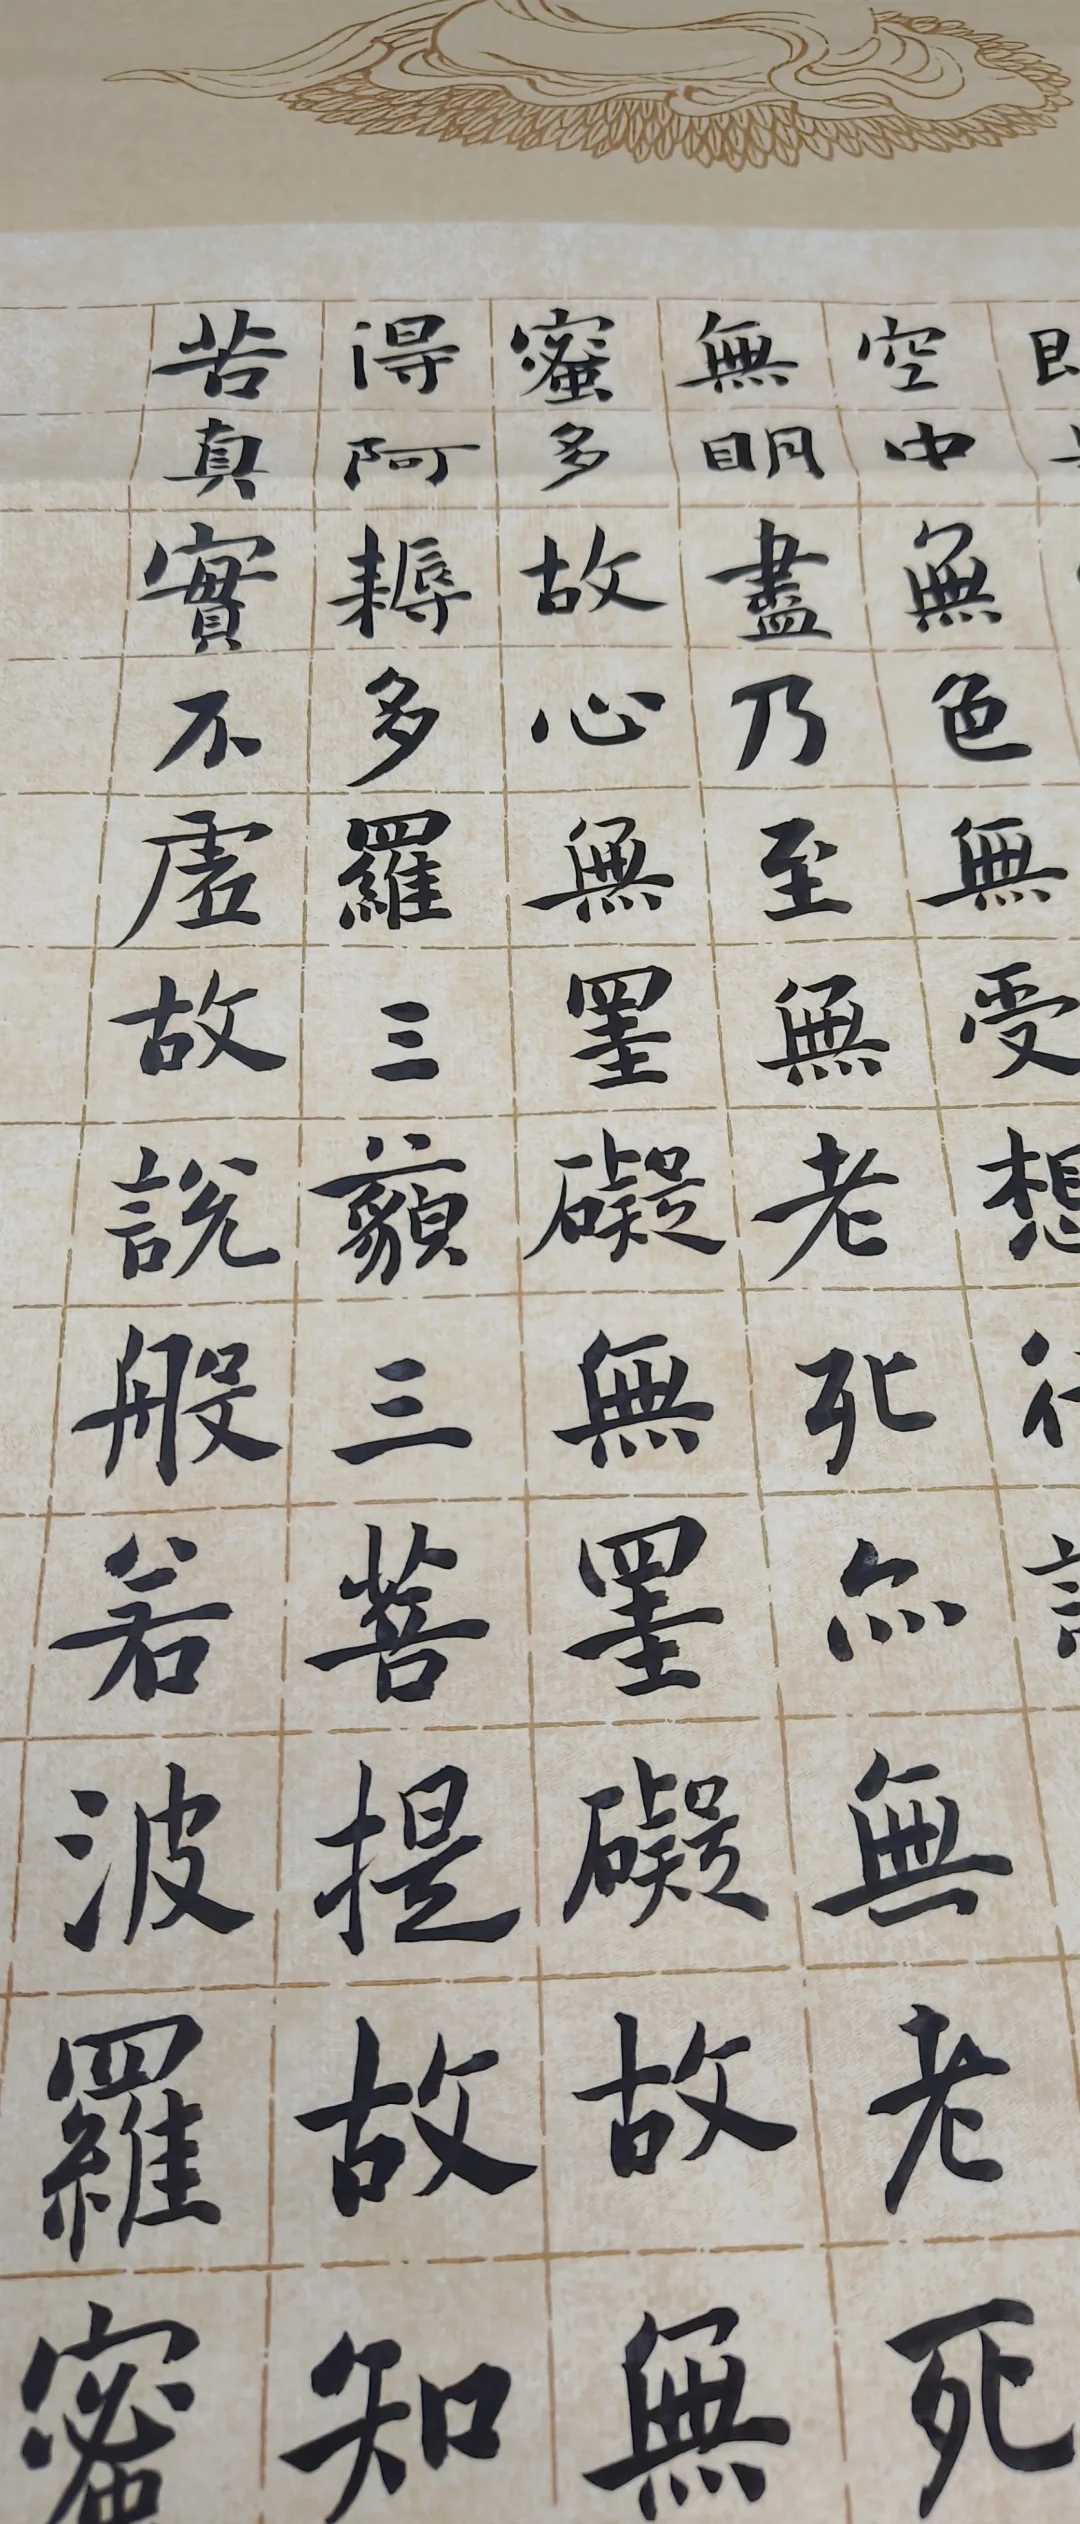 空中無色無受想
無明盡乃至無老死亦無老死
蜜多故心無罣礙無罣礙故無
得阿耨多羅三藐三菩提故知
苦真實不虛故說般若波羅蜜